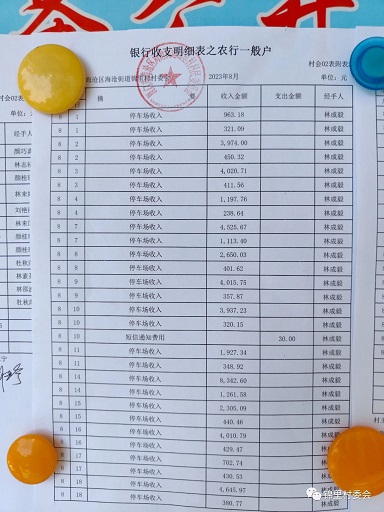 银行收支明细表之农行一般户
村会02表附表
海沧区海沧街道锦里村委会 2023年8月 单位:元
摘 要 收入金额 支出金额 经手人
8 1 停车场收入 963.18 林成毅
8 1 停车场收入 321.09 林成毅
8 2 停车场收入 3,974.00 林成毅
8 2 停车场收入 450.32 林成毅
8 3 停车场收入 4,020.71 林成毅
8 3 停车场收入 411.56 林成毅
8 4 停车场收入 1,197.76 林成毅
8 4 停车场收入 238.64 林成毅
8 7 停车场收入 4,525.67 林成毅
8 7 停车场收入 1,113.40 林成毅
8 8 停车场收入 2,650.03 林成毅
8 8 停车场收入 401.62 林成毅
8 9 停车场收入 4,015.75 林成毅
8 9 停车场收入 357.87 林成毅
8 10 停车场收入 3,937.23 林成毅
8 10 停车场收入 320.15 林成毅
8 10 短信通知费用 30.00 林成毅
8 11 停车场收入 1,927.34 林成毅
8 11 停车场收入 348.92 林成毅
8 14 停车场收入 8,342.60 林成毅
8 14 停车场收入 1,261.58 林成毅
8 15 停车场收入 2,305.09 林成毅
8 15 停车场收入 440.46 林成毅
8 16 停车场收入 4,010.79 林成毅
8 16 停车场收入 429.47 林成毅
8 17 停车场收入 702.74 林成毅
8 17 停车场收入 430.53 林成毅
8 18 停车场收入 4,645.97 林成毅
8 18 停车场收入 380.77
锦里村委会